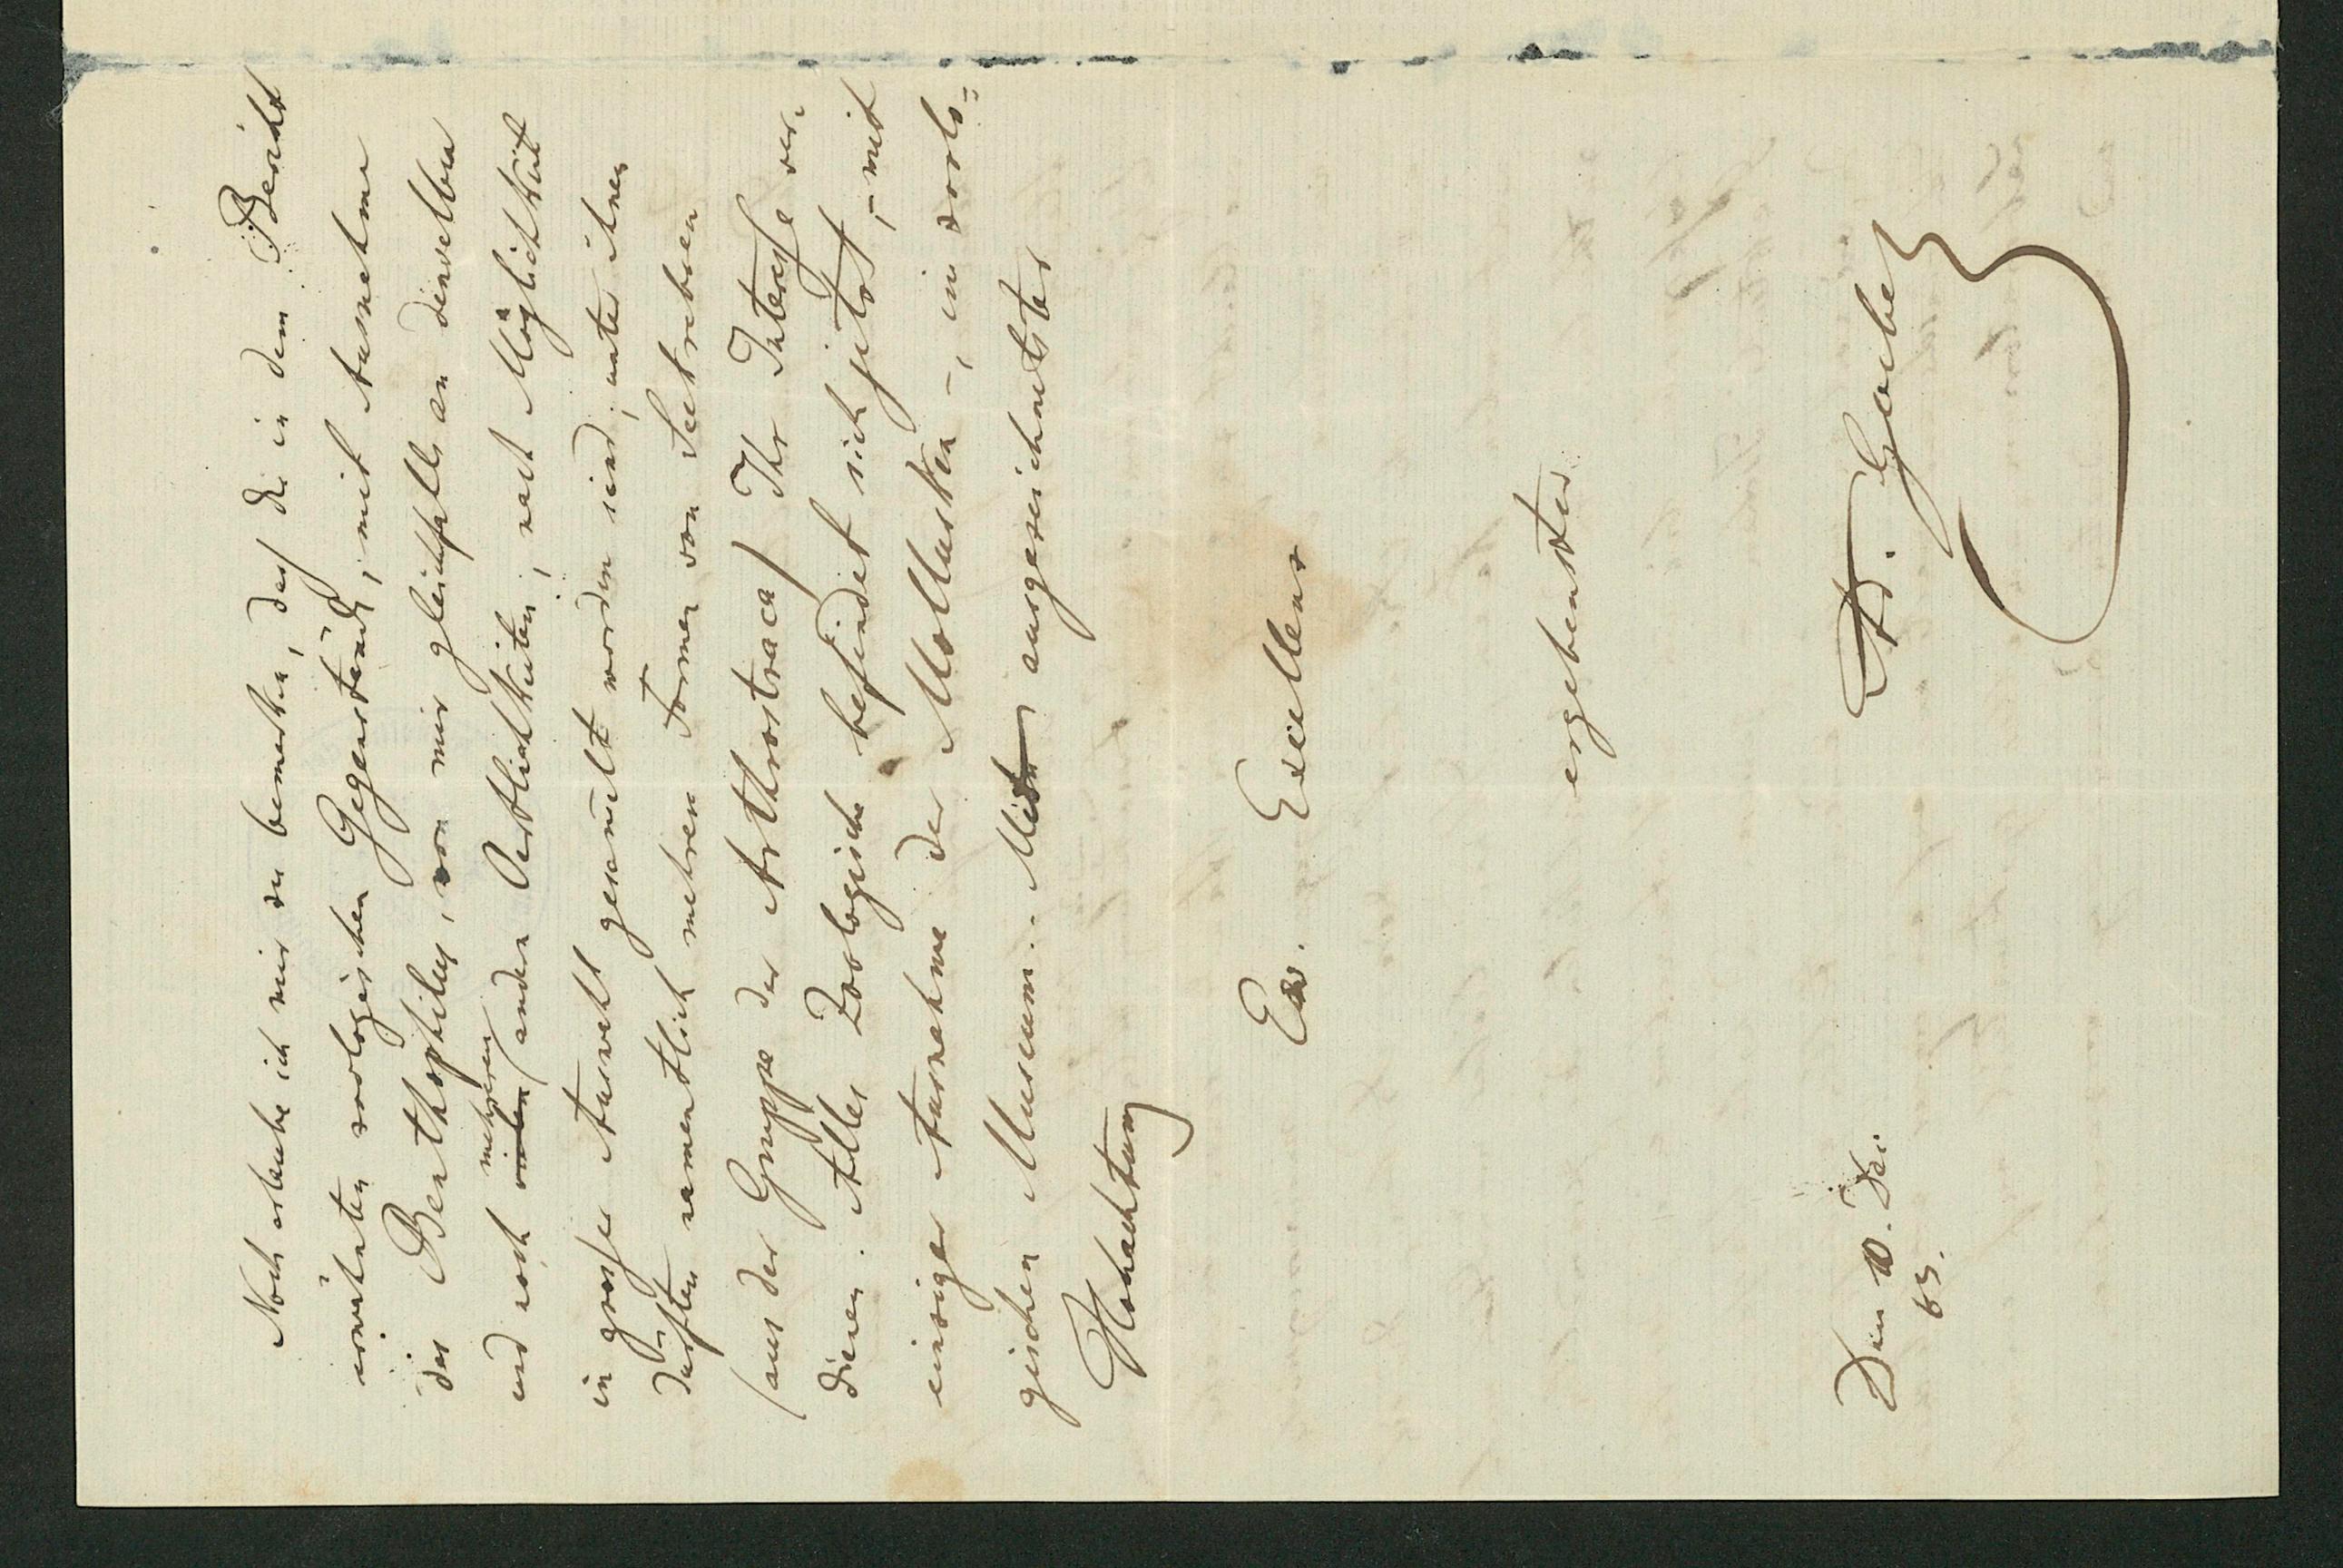 Noch erlaube ich mir zu bemerken, dass die in dem Bericht
erwähnten zoologischen Gegenstände, mit Ausnahme
des Benthophilus, von mir gleichfalls an denselben
und noch vielen mehreren andern Oertlichkeiten, nach Möglichkeit
in grosser Auswahl gesam̄elt worden sind; unter ihnen
dürften namentlich mehrere Formen von Seekrebsen
(aus der Gruppe der Arthrostraca) Ihr Interesse ver-
dienen. Alles Zoologische befindet sich jetzt, - mit
einziger Ausnahme der Mollusken -, im zoolo=
gischen Museum. - Mit ausgezeichnetster
Hochachtung
Ew. Excellenz
ergebenster
Ad. Goebel
Den 10.
63.